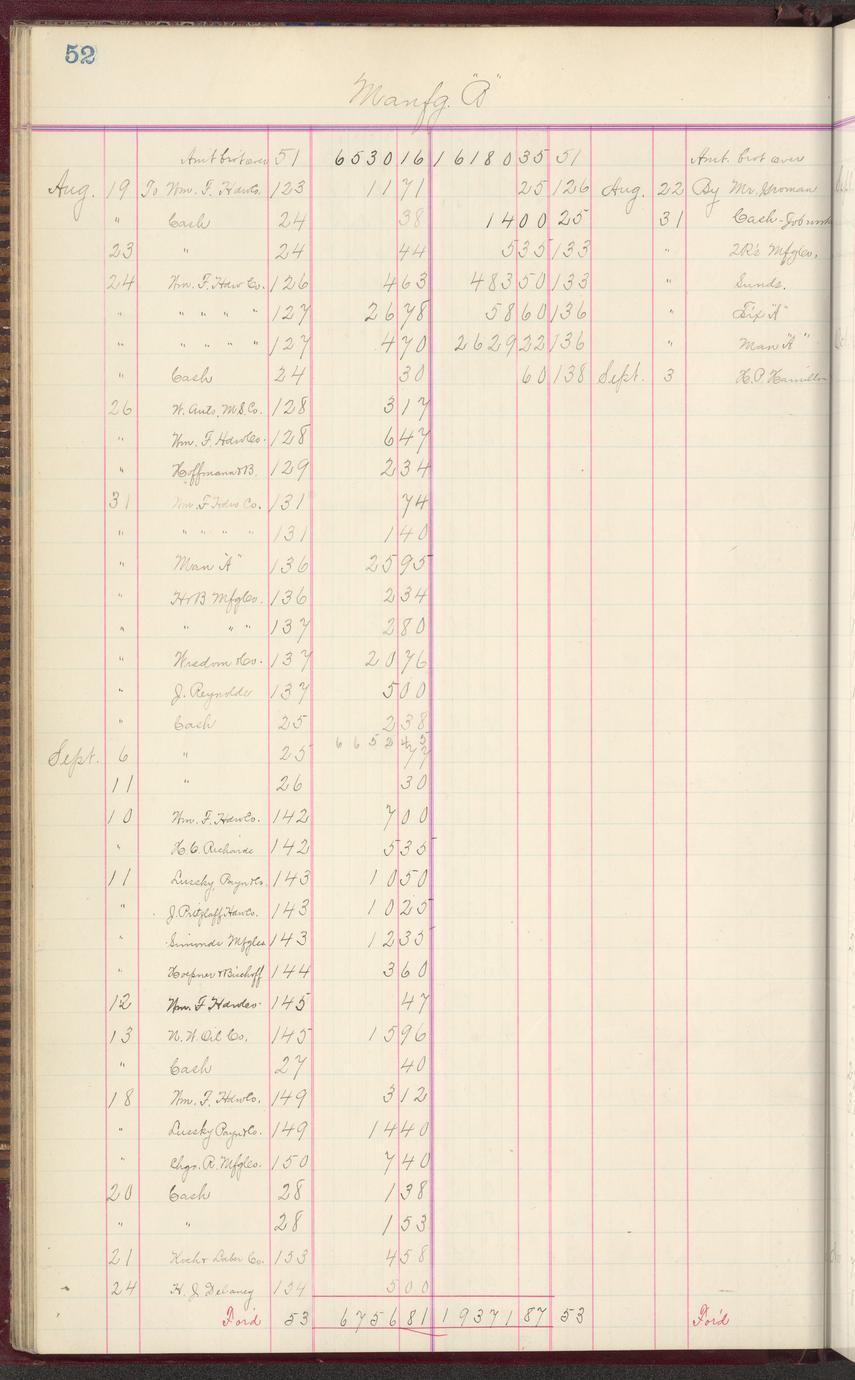 52
Manfg. "B"
Amt brot over 51 6530 16 16180 35 51 Amt. brot over
Aug. 19 To Wm. F. Hdw Co. 123 11 71 25 126 Aug. 22 By Mr.
" Cash 24 38 1400 25 31 Cash - Job work
23 " 24 44 5 35 133 " 2R's Mfg Co.
24 Wm. F. Hdw Co. 126 4 63 483 50 133 " Sunds.
" " " " " 127 26 78 58 60 136 " Fix "A"
" " " " " 127 4 70 2629 22 136 " Man "A"
" Cash 24 30 60 138 Sept. 3 H. P. Hamilton
26 W. Auto. M. S. Co. 128 3 17
" Wm. F. Hdw Co. 128 6 47
" Hoffmann & B. 129 2 34
31 Wm. F. Hdw Co. 131 74
" " " " " 131 1 40
" Man "A" 136 25 95
" H & B Mfg Co. 136 2 34
" " " " 137 2 80
" Wisdom & Co. 137 20 76
" J. Reynolds 137 5 00
" Cash 25 2 38
6652 45
Sept. 6 " 25 77
11 " 26 30
10 Wm. F. Hdw Co. 142 7 00
" H. C. Richards 142 5 35
11 Lussky, Payn & Co. 143 10 50
" J. Pritzlaff Hdw Co. 143 10 25
" Simonds Mfg Co 143 12 35
" Hoepner & Bischoff 144 3 60
12 Wm. F. Hdw Co. 145 47
13 N. W. Oil Co. 145 15 96
" Cash 27 40
18 Wm. F. Hdw Co. 149 3 12
" Lussky Payn & Co. 149 14 40
" Chgo. R. Mfg Co. 150 7 40
20 Cash 28 1 38
" " 28 1 53
21 Koehr Co. 153 4 58
24 H. J. Delaney 154 5 00
For'd 53 6756 81 19371 87 53 For'd